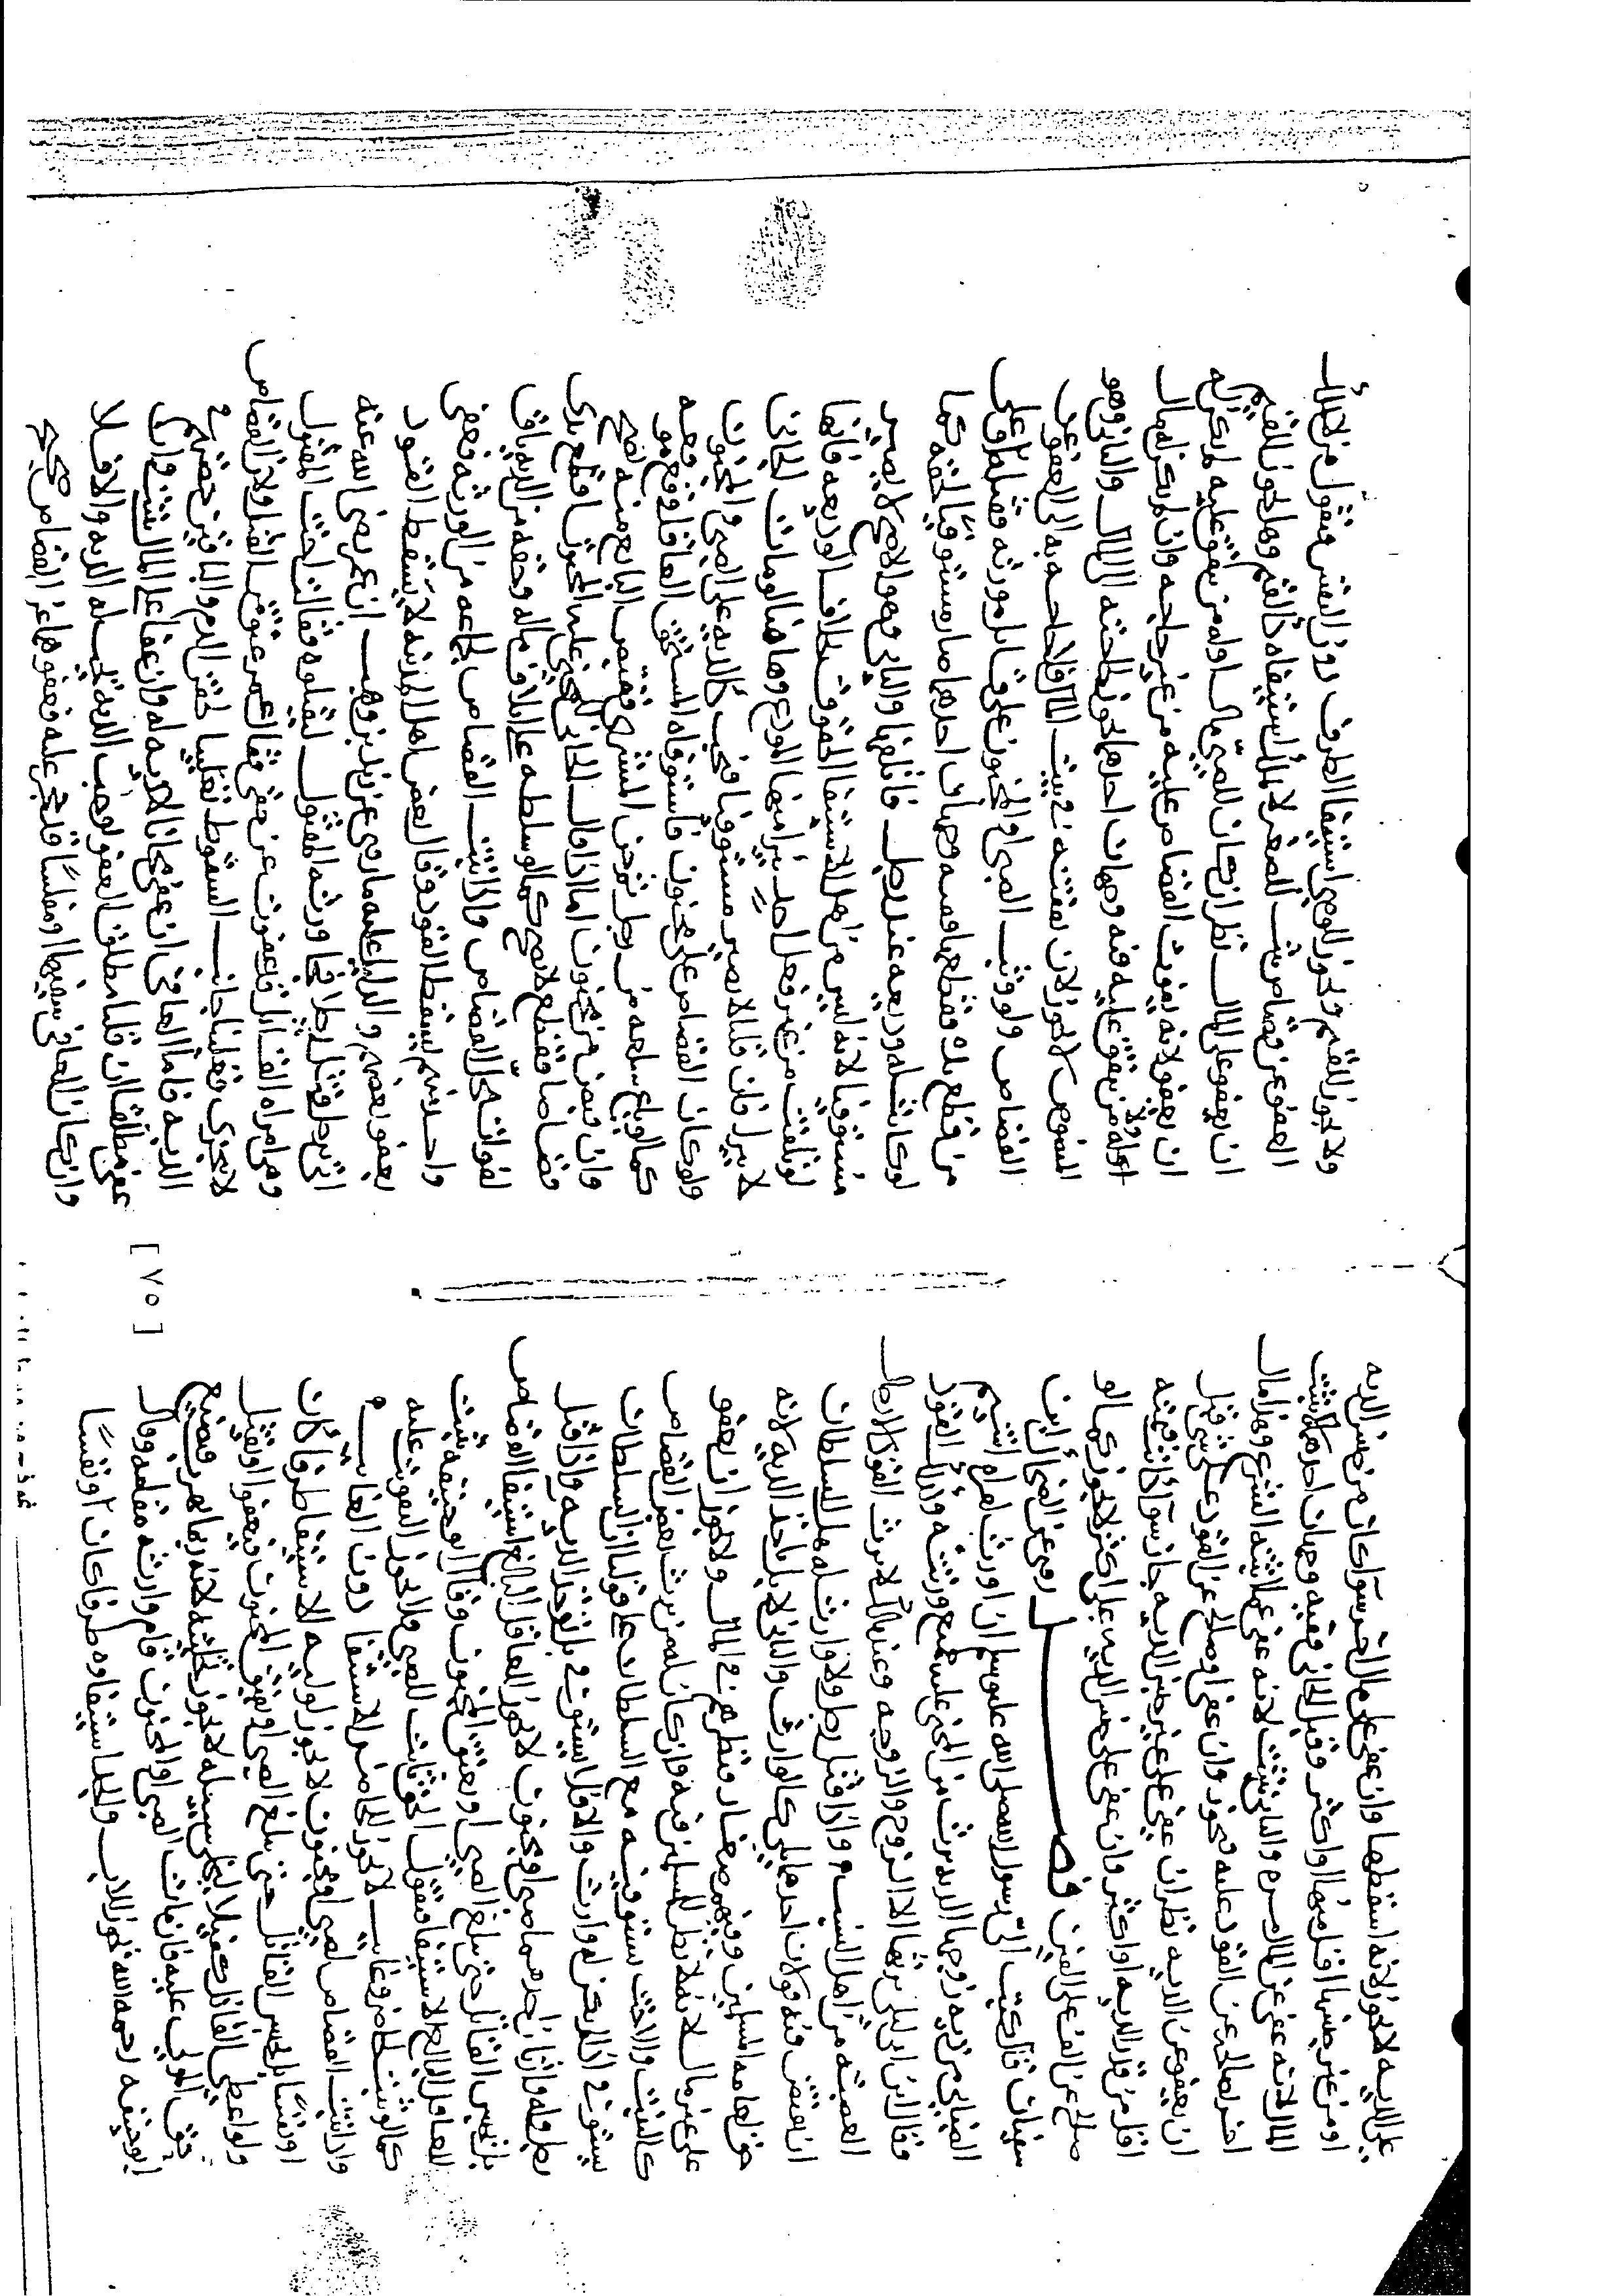 على الدية لا يجوز لانه اسقطها وان عفى على مال اخر سوآ كان من جنس الدية
او من غير جنسها اقل منها او اكثر وقبل الجاني ففيه وجهان احدهما لا يثبت
المال لانه عفى عن المال مرة والثاني يثبت لانه عفى عما اثبته الشرع وهذا مال
اخر يصالح عن القود عليه فيجوز وان عفى او صالح عن القود على شي قبل
ان يعفو عن الدية نظر ان عفى على غير جنس الدية جاز سوآ كانت قيمته
اقل من قدر الدية او اكثر وان عفى على جنس الدية على اكثر لا يجوز كما لو
صالح عن الف على الفين فصل روي عن الضحاك بن
سفيان قال كتب الي رسول الله صلى الله عليه وسلم ان اورث امراة اشيم
الضبابي من دية زوجها الدية يرث من المجني عليه جميع ورثته وكذلك القود
وقال ابن ابي ليلى يرثها الا الزوج والزوجة وعند مالك لا يرث القود الا رجال
العصبة من اهل النسب واذا قتل رجل ولا وارث له هل للسلطان
ان يقتص فيه قولان احدهما بلى كالوارث والثاني لا بل ياخذ الدية لانه
حق لعامة المسلمين وفيهم صغار فنظرهم في المال ولا يجوز ان يعفو
على غير مال لانه لا نظر للمسلمين فيه وان كان له من يرث بعض القصاص
كالبنت والاخت يستوفيه مع السلطان على قولنا ان السلطان
يستوفي اذا لم يكن له وارث والا فلا يستوفي بل توخذ الدية واذا قتل
رجل وله وارثان احدهما صبي او مجنون لا يجوز للعاقل البالغ استيفا القصاص
بل يحبس القاتل حتى يبلغ الصبي او يعتق المجنون وقال ابو حنيفة يثبت
للعاقل البالغ الاستيفا فنقول الحق ثابت للصبي فلا يجوز التفويت عليه
كما لو ثبت لحاضر وغايب لا يجوز للحاضر الاستيفا دون الغايب
واذا ثبت القصاص لصبي او مجنون لا يجوز لوليه الاستيفا طرفا كان
او نفسا بل يحبس القاتل حتى يبلغ الصبي او يفيق المجنون فيعفوا او يقتل
ولو اعطى القاتل كفيلا ليخلى سبيله لا يجوز تخليته لانه ربما يهرب فيضيع
حق المولى عليه فان مات الصبي او المجنون قام وارثه مقامه وقال
ابو حنيفة رحمه الله يجوز للاب والجد استيفاوه طرفا كان او نفسا
[٧٥]
ولا يجوز للقيم ويجوز للوصي استيفا الطرف دون النفس فنقول من لا يملك
العفو عن قصاص ثبت للصغير لا يملك استيفاه كالقيم وهل يجوز للقيم
ان يعفو على المال نظر ان كان للصبي مال او له من ينفق عليه لم يكن له
ان يعفو لانه يفوت القصاص عليه من غير حاجة وان لم يكن له مال
ولا له من ينفق عليه فيه وجهان احدهما يجوز لحاجته الى المال والثاني وهو
المنصوص لا يجوز لان نفقته في بيت المال فلا حاجة به الى العفو عن
القصاص ولو وثب الصبي او المجنون على قاتل مورثه فقتله او على
من قطع يده فقطعها فيه وجهان احدهما صار مستوفيا لحقه كما
لو كانت له وديعة عند رجل فاتلفها والثاني وهو الاصح لا يصير
مستوفيا لانه ليس من اهل استيفا الحقوق بخلاف الوديعة فانها
لو تلفت من غير فعل احد بري منها المودع وهاهنا لو مات الجاني
لا يبرا فان قلنا لا يصير مستوفيا فيجب الدية على الصبي والمجنون
ولو كان القصاص على مجنون فاستوفاه المستحق العاقل وقع فعله موقعه
كما لو باع سلعة من رجل فجن المشتري فقبض البايع منه الثمن يصح
وان قبض من مجنون اما اذا قال الجاني للمجني عليه المجنون اقطع يدي
قصاصا فقطع لا يصح كما لو سلطه على اتلاف ماله وحقه من الدية باق
لفوات محل القصاص واذا ثبت القصاص لجماعة من الورثة فعفى
واحد منهم يسقط القود وقال بعض اهل المدينة لا يسقط القود
بعفو بعضهم والدليل عليه ما روي عن زيد بن وهب ان عمر رضي الله عنه
اتي برجل قتل رجلا فجا ورثة المقتول ليقتلوه فقالت اخت المقتول
وهي امراة القاتل قد عفوت عن حقي فقال عمر عتق من القتل ولان القصاص
لا يتجزى فغلبنا جانب السقوط تغليبا لحقن الدم والباقين حقهم في
الدية فاما العافي ان عفى مجانا لا دية له وان عفى على المال ثبت وان
عفى مطلقا ان قلنا مطلق العفو يوجب الدية تجب له الدية والا فلا
وان كان العافي سفيها او مفلسا قد حجر عليه فعفوهما عن القصاص صحيح